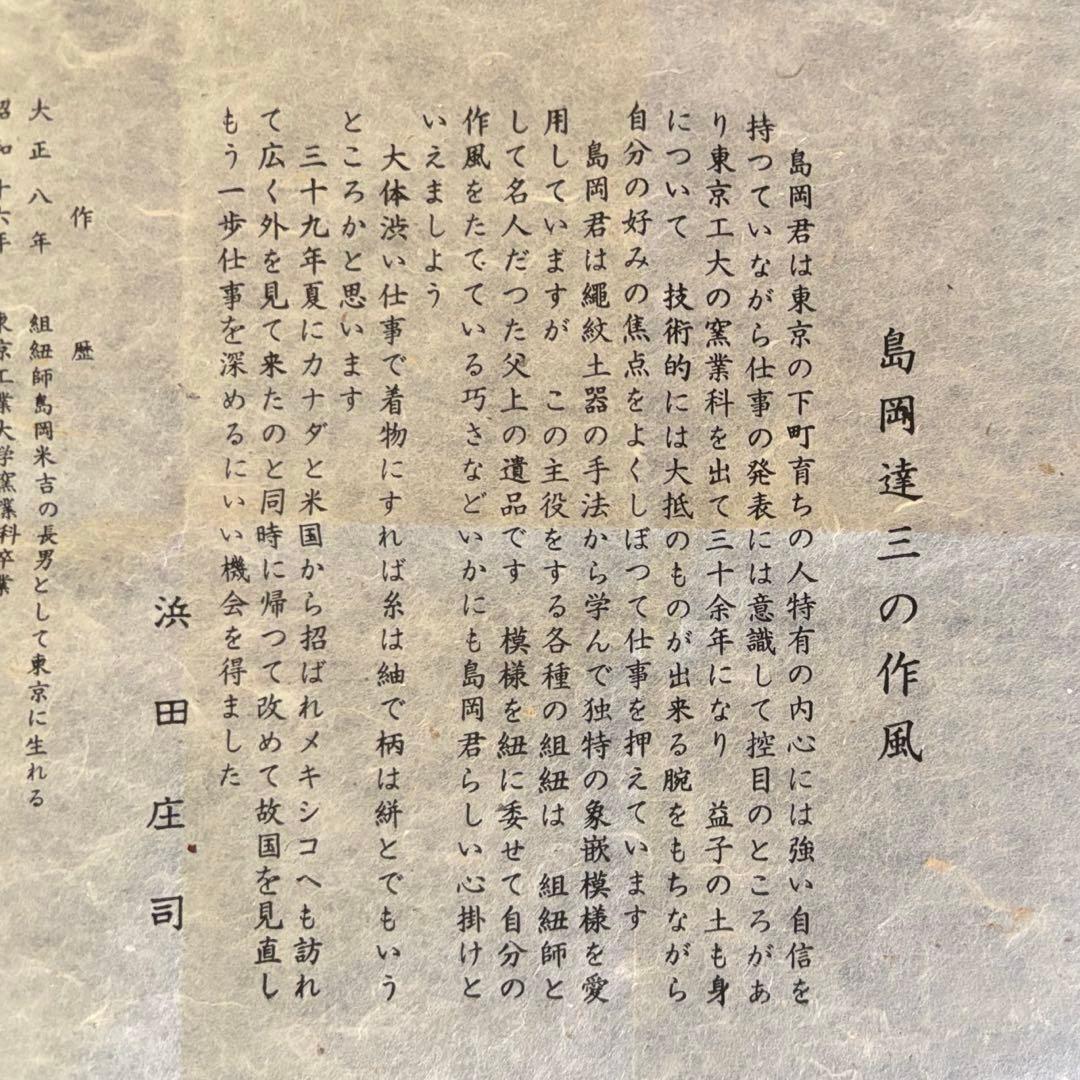 島岡達三の作風
島岡君は東京の下町育ちの人特有の内心には強い自信を
持つていながら仕事の発表には意識して控目のところがあ
り東京工大の窯業科を出て三十余年になり　益子の土も身
について　技術的には大抵のものが出来る腕をもちながら
自分の好みの焦点をよくしぼつて仕事を押えています
島岡君は縄紋土器の手法から学んで独特の象嵌模様を愛
用していますが　この主役をする各種の組紐は　組紐師と
して名人だつた父上の遺品です　模様を紐に委せて自分の
作風をたてている巧さなどいかにも島岡君らしい心掛けと
いえましよう
大体渋い仕事で着物にすれば糸は紬で柄は絣とでもいう
ところかと思います
三十九年夏にカナダと米国から招ばれメキシコへも訪れ
て広く外を見て来たのと同時に帰つて改めて故国を見直し
もう一歩仕事を深めるにいい機会を得ました
浜田庄司
作歴
大正八年　組紐師島岡米吉の長男として東京に生れる
昭和十六年　東京工業大学窯業科卒業